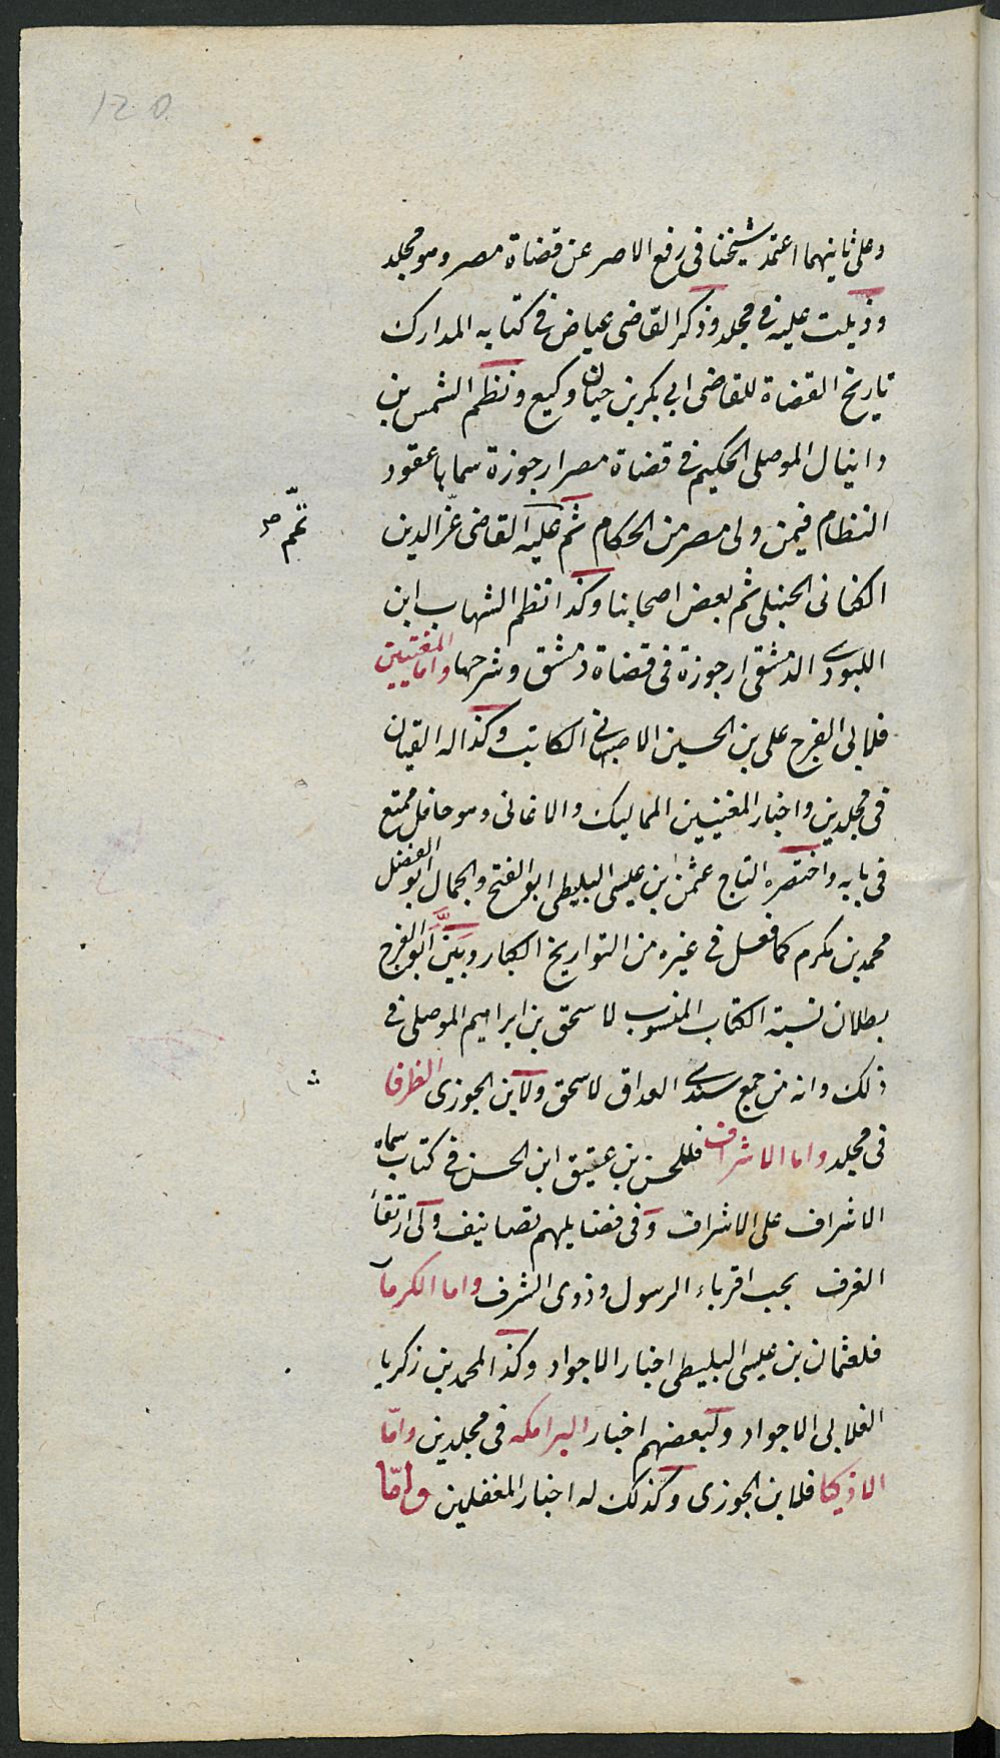 120
وعلى ثانيهما اعتمد شيخنا فى رفع الاصر عن قضاة مصر وهو مجلد
وذيلت عليه فى مجلد وذكر القاضى عياض فى كتابه المدارك
تاريخ القضاة للقاضى ابى بكر بن حيان وكيع ونظم الشمس بن
دانيال الموصلى الحكيم فى قضاة مصر ارجوزة سماها عقود
النظام فيمن ولى مصر من الحكام ثم عليه القاضى عز الدين
تمم صح
الكنانى الحنبلى ثم بعض اصحابنا وكذا نظم الشهاب ابن
اللبودى الدمشقى ارجوزة فى قضاة دمشق وشرحها واما المغنيين
فلابى الفرج على بن الحسين الاصبهانى الكاتب وكذا له القيان
فى مجلدين واخبار المغنيين المماليك والاغانى وهو حافل ممتع
فى بابه واختصره التاج عثمن بن عيسى البليطى ابو الفتح والجمال ابو الفضل
محمد بن مكرم كما فعل فى غيره من التواريخ الكبار وبَيَّنَ ابو الفرج
بطلان نسبة الكتاب المنسوب لاسحق بن ابراهيم الموصلى فى
ذلك وانه من جمع سندى الوراق لاسحق ولابن الجوزى الظرفا
فى مجلد واما الاشراف فللحسن بن عتيق ابن الحسن فى كتاب سماه
الاشراف على الاشراف وفى فضايلهم تصانيف ولى ارتقأ
الغرف بحب اقرباء الرسول وذوى الشرف واما الكرمآ
فلعثمان بن عيسى البليطى اخبار الاجواد وكذا لمحمد بن زكريا
الغلابى الاجواد ولبعضهم اخبار البرامكه فى مجلدين وامّا
الاذكيا فلابن الجوزى وكذلك له اخبار المغفلين وامّا